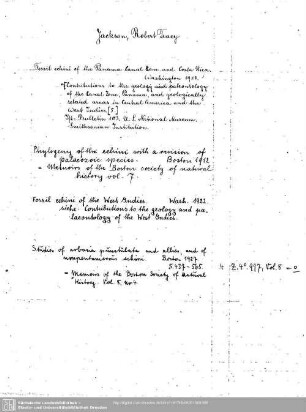 Jackson, Robert Tracy
Fossil echini of the Panama Canal Zone and Costa Rica.
Washington 1918.
= Contributions to the geology and paleontology
of the Canal Zone, Panama, and geologically
related areas in Central America and the
West Indies [5]
Bulletin 103, U. S. National Museum.
Smithsonian Institution.
Phylogeny of the echini with a revision of
palaeozoic species. Boston 1912
= Memoirs of the Boston society of natural
history vol. 7.
Fossil echini of the West Indies. Wash. 1922.
siehe: Contributions to the geology and pa-
laeontology of the West Indies.
Studies of arbacia punctulata and allies, and of
nonpentamerous echini. Boston 1927.
S. 437-565.
= Memoirs of the Boston Society of natural
History. Vol. 8, No 4
4 Z. 4° 997, Vol. 8